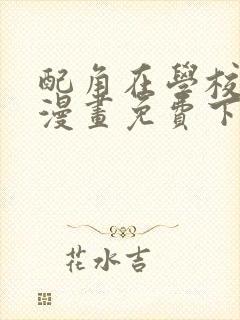 配角在學校
漫畫免費下
花水吉